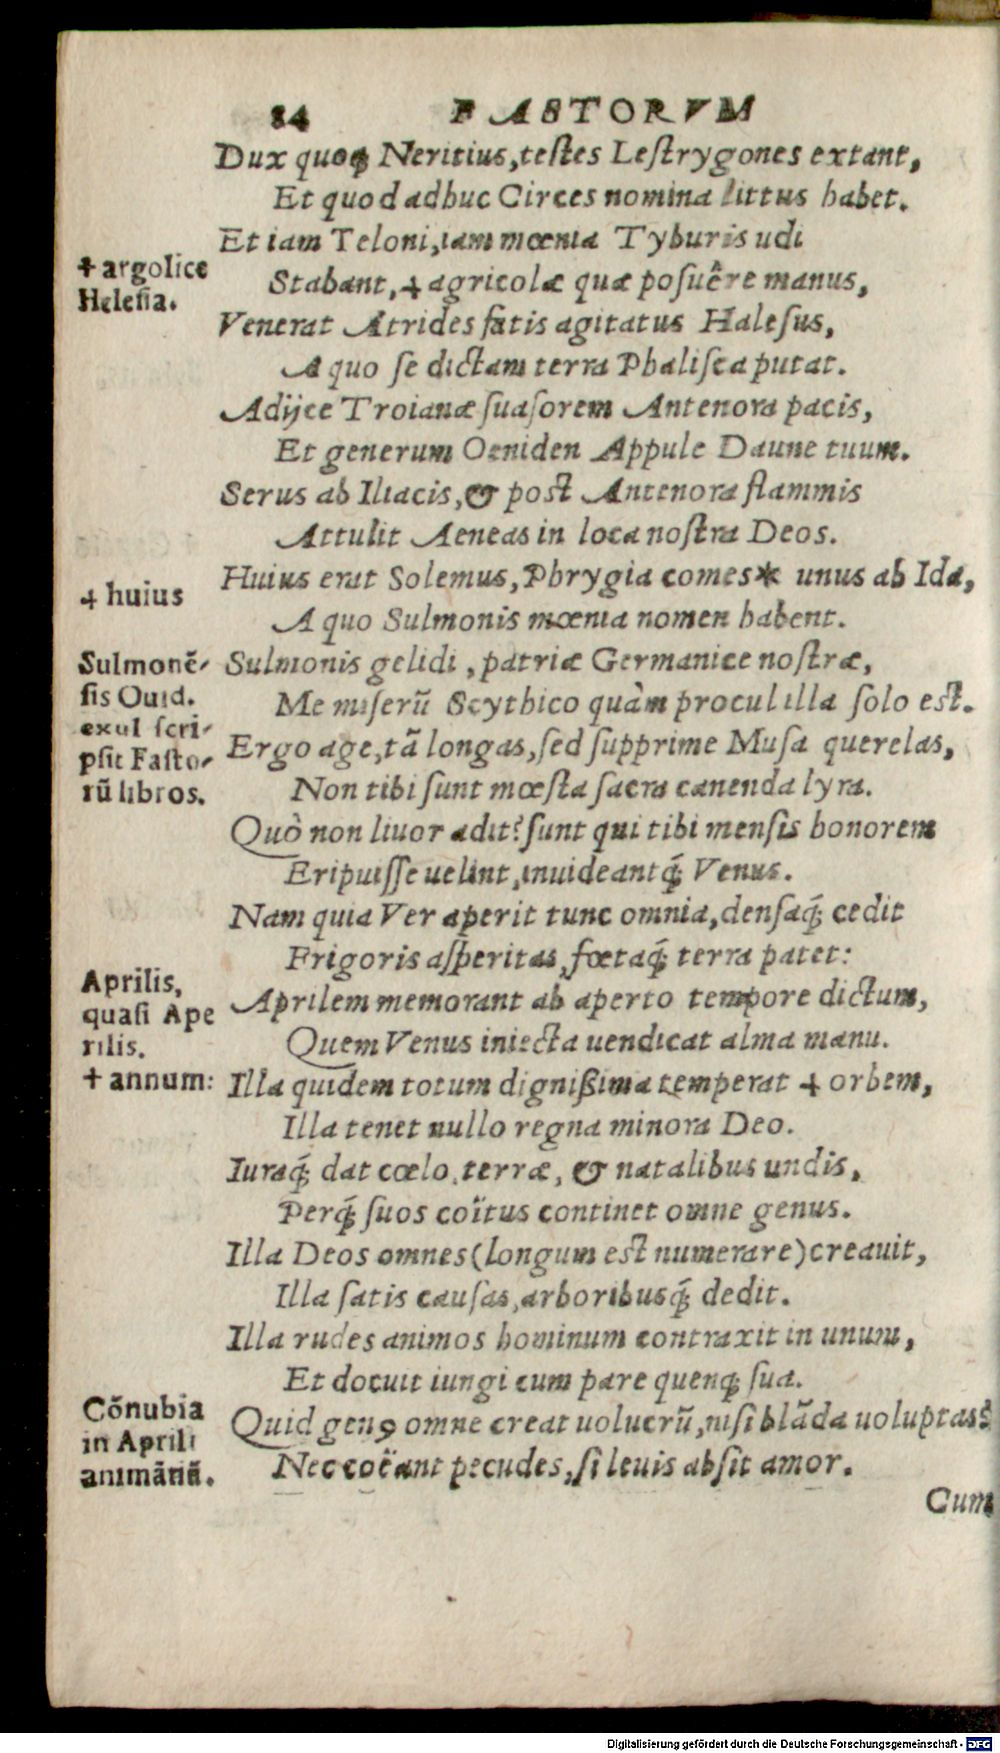 84 FASTORVM
Dux quoq; Neritius, testes Lestrygones extant,
Et quod adhuc Circes nomina littus habet.
Et iam Teloni, iam mœnia Tyburis udi
✝ argolice
Helesia.
Stabant, ✝ agricolæ quæ posuêre manus,
Venerat Atrides fatis agitatus Halesus,
A quo se dictam terra Phalisca putat.
Adijce Troianæ suasorem Antenora pacis,
Et generum Oeniden Appule Daune tuum.
Serus ab Iliacis, & post Antenora flammis
Attulit Aeneas in loca nostra Deos.
Huius erat Solemus, Phrygia comes* unus ab Ida,
✝ huius
A quo Sulmonis mœnia nomen habent.
Sulmonẽ-
sis Ouid.
exul scri-
psit Fasto-
rũ libros.
Sulmonis gelidi, patriæ Germanice nostræ,
Me miserũ Scythico quàm procul illa solo est.
Ergo age, tã longas, sed supprime Musa querelas,
Non tibi sunt mœsta sacra canenda lyra.
Quò non liuor adit? sunt qui tibi mensis honorem
Eripuisse uelint, inuideantq́; Venus.
Nam quia Ver aperit tunc omnia, densaq́; cedit
Frigoris asperitas, fœtaq́; terra patet:
Aprilis,
quasi Ape
rilis.
Aprilem memorant ab aperto tempore dictum,
Quem Venus iniecta uendicat alma manu.
✝ annum:
Illa quidem totum dignißima temperat ✝ orbem,
Illa tenet nullo regna minora Deo.
Iuraq́; dat cœlo, terræ, & natalibus undis,
Perq́; suos coïtus continet omne genus.
Illa Deos omnes (longum est numerare) creauit,
Illa satis causas, arboribusq́; dedit.
Illa rudes animos hominum contraxit in unum,
Et docuit iungi cum pare quenq; sua.
Cõnubia
in Aprili
animãtiũ.
Quid genꝰ omne creat uolucrũ, nisi blãda uoluptas?
Nec coëant pecudes, si leuis absit amor.
Cum
Digitalisierung gefördert durch die Deutsche Forschungsgemeinschaft - DFG